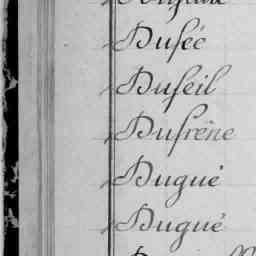 Duféé
Dufeil
Dufrêne
Dugué
Dugué